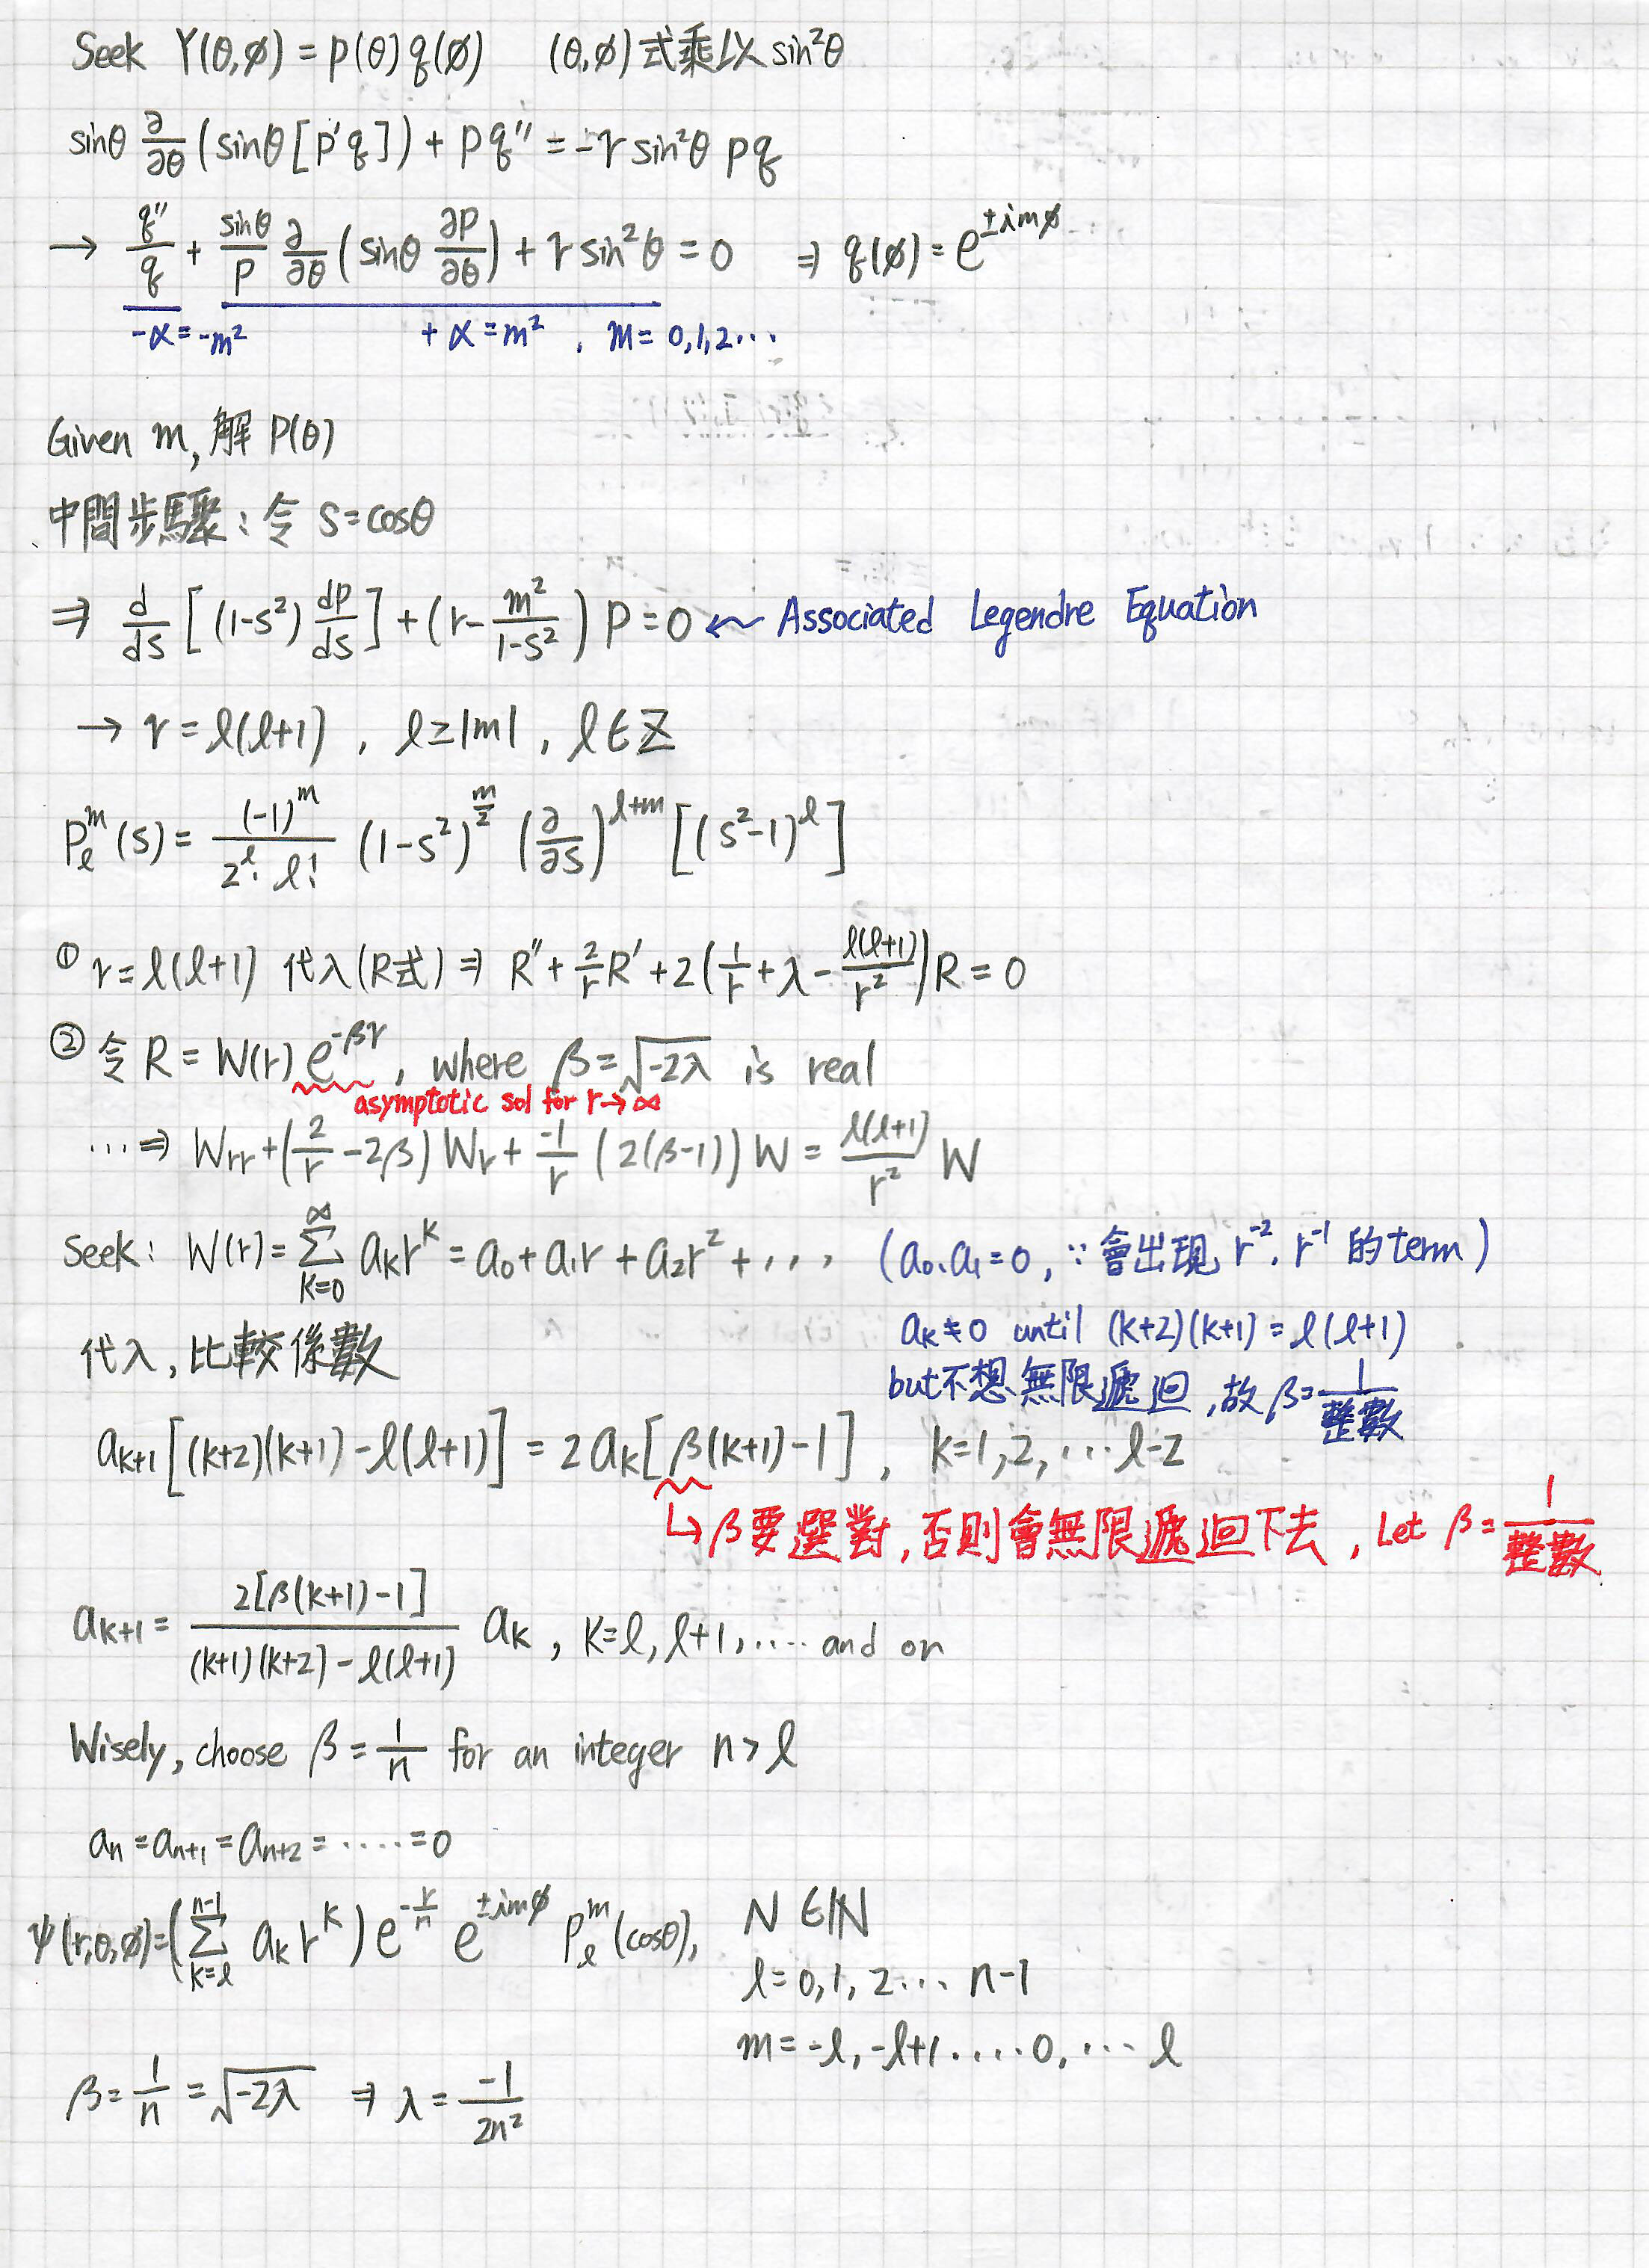 Seek Y(θ,ϕ) = p(θ) q(ϕ) (θ,ϕ) 式乘以 sin²θ
sinθ ∂/∂θ (sinθ [p'q]) + p q'' = -γ sin²θ pq
→ q''/q + sinθ/p ∂/∂θ (sinθ ∂p/∂θ) + γ sin²θ = 0 ⇒ q(ϕ) = e^{±imϕ}
-α = -m² +α = m², m = 0,1,2...
Given m, 解 P(θ)
中間步驟: 令 s = cosθ
⇒ d/ds [(1-s²) dp/ds] + (γ - m²/(1-s²)) P = 0 ← Associated Legendre Equation
→ γ = l(l+1), l ≥ |m|, l ∈ ℤ
P_l^m (s) = (-1)^m/(2^l · l!) (1-s²)^{m/2} (∂/∂s)^{l+m} [(s²-1)^l]
① γ = l(l+1) 代入(R式) ⇒ R'' + 2/r R' + 2(1/r + λ - l(l+1)/r²) R = 0
② 令 R = W(r) e^{-βr}, where β = √(-2λ) is real
asymptotic sol for r→∞
... ⇒ W_rr + (2/r - 2β) W_r + -1/r (2(β-1)) W = l(l+1)/r² W
Seek: W(r) = Σ_{k=0}^{∞} a_k r^k = a_0 + a_1 r + a_2 r² + ... (a_0. a_1 = 0, ∵ 會出現 r^{-2}. r^{-1} 的 term)
a_k ≠ 0 until (k+2)(k+1) = l(l+1)
代入, 比較係數
but 不想無限遞迴, 故 β = 1/整數
a_{k+1} [(k+2)(k+1) - l(l+1)] = 2 a_k [β(k+1) - 1], k = 1,2,... l-2
↳ β要選對, 否則會無限遞迴下去, Let β = 1/整數
a_{k+1} = 2[β(k+1) - 1]/((k+1)(k+2) - l(l+1)) a_k, k = l, l+1, .... and on
Wisely, choose β = 1/n for an integer n > l
a_n = a_{n+1} = a_{n+2} = ..... = 0
ψ(r,θ,ϕ) = (Σ_{k=l}^{n-1} a_k r^k) e^{-r/n} e^{±imϕ} P_l^m (cosθ), N ∈ ℕ
l = 0, 1, 2... n-1
m = -l, -l+1 .... 0, ... l
β = 1/n = √(-2λ) ⇒ λ = -1/2n²